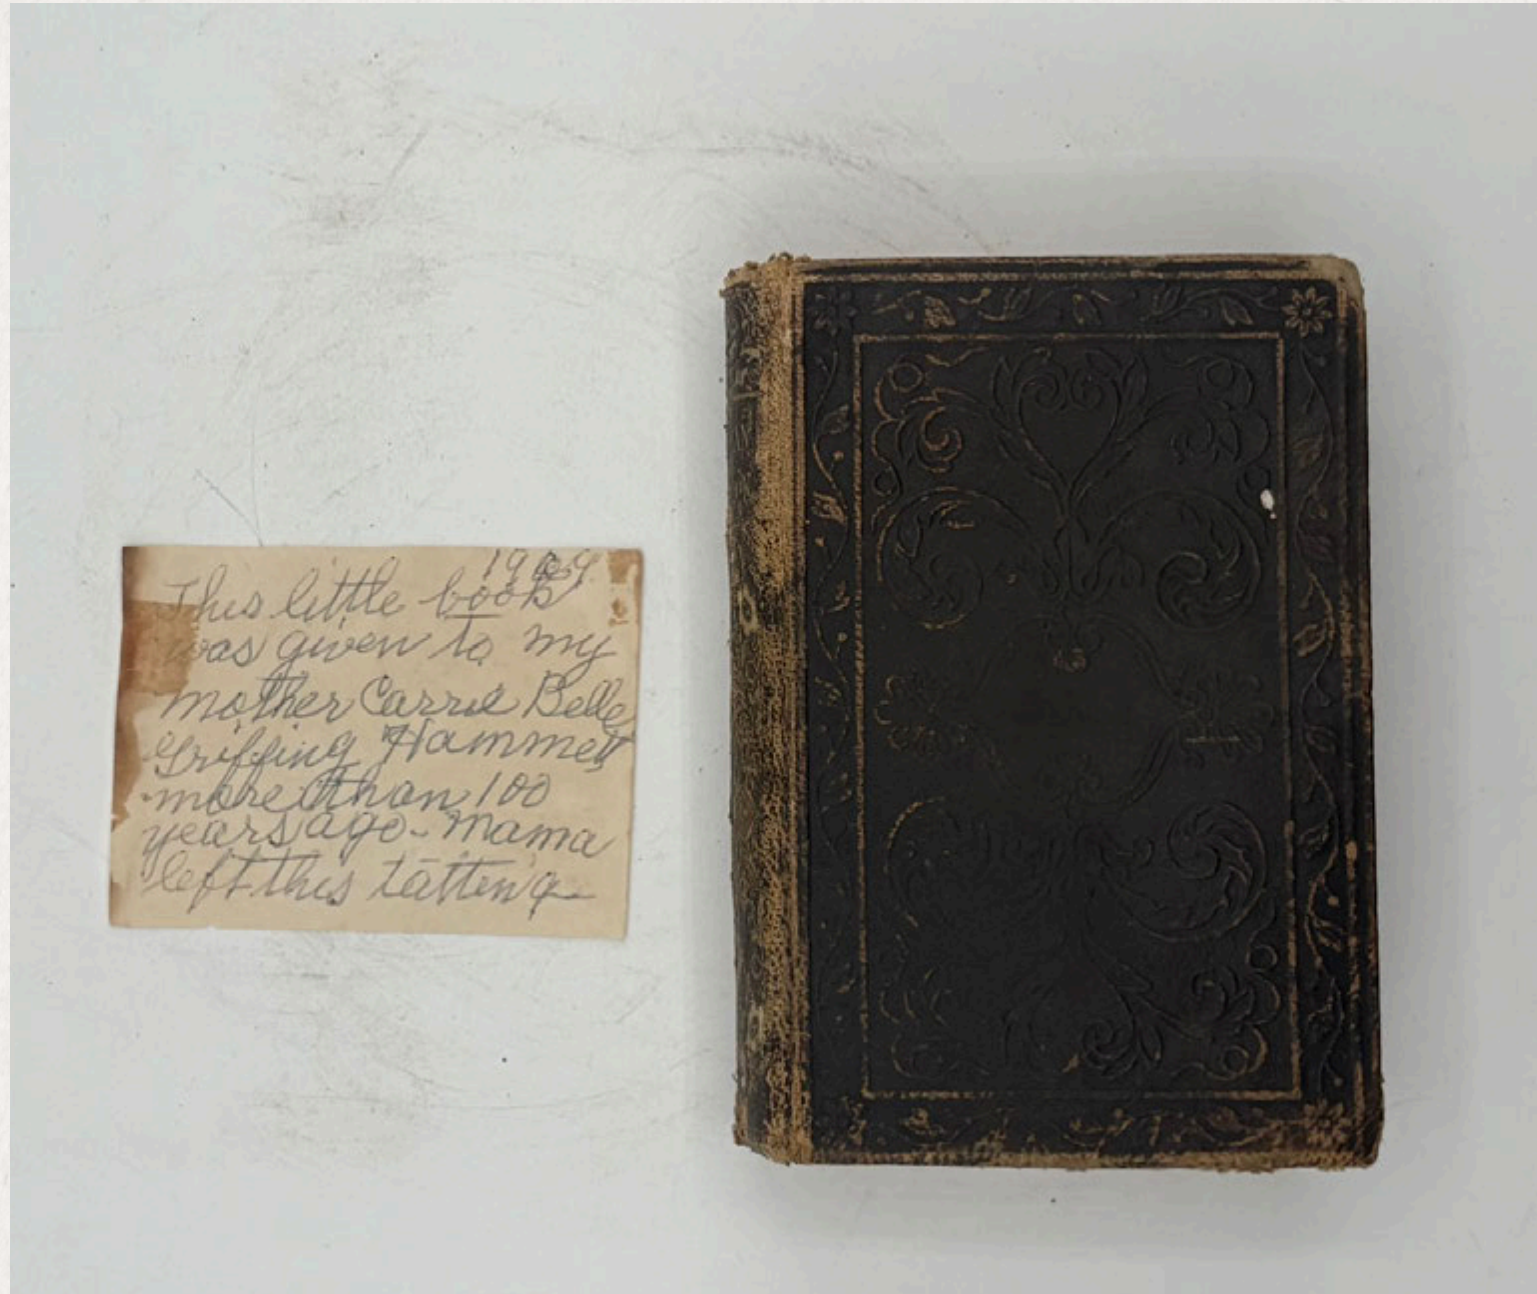 This little book
was given to my
mother Carrie Belle
Griffing Hammett
more than 100
years ago - Mama
left this tatting